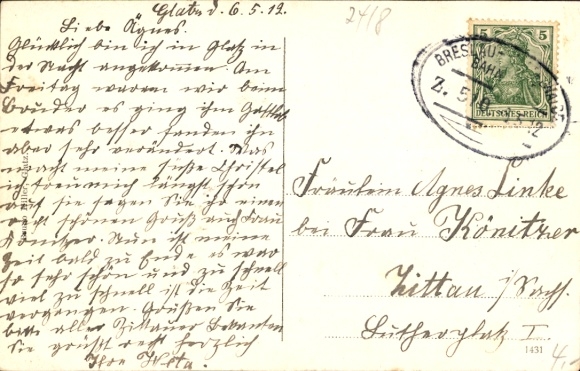 Glatz d. 6.5.12.
Liebe Agnes.
Glücklich bin ich in Glatz in
der Nacht angekommen. Am
Freitag waren wir beim
Bruder es ging ihm Gottlob
etwas besser fanden ihn
aber sehr verändert. Was
macht meine süße Christel
ich freu mich längst schon
auf sie sagen Sie ihr einen
recht schönen Gruß auch Frau
Könitzer. Nun ist meine
Zeit bald zu Ende es war
so sehr schön und zu schnell
viel zu schnell ist die Zeit
vergangen. Grüßen Sie
bitte alle Zittauer Bekannten
Sie grüßt recht herzlich
Ihre Meta.
2418
5 5
DEUTSCHES REICH
BRESLAU-
BAHN
Z. 516
Fräulein Agnes Linke
bei Frau Könitzer
Zittau i/Sachs.
Lutherplatz I.
1431
4.-